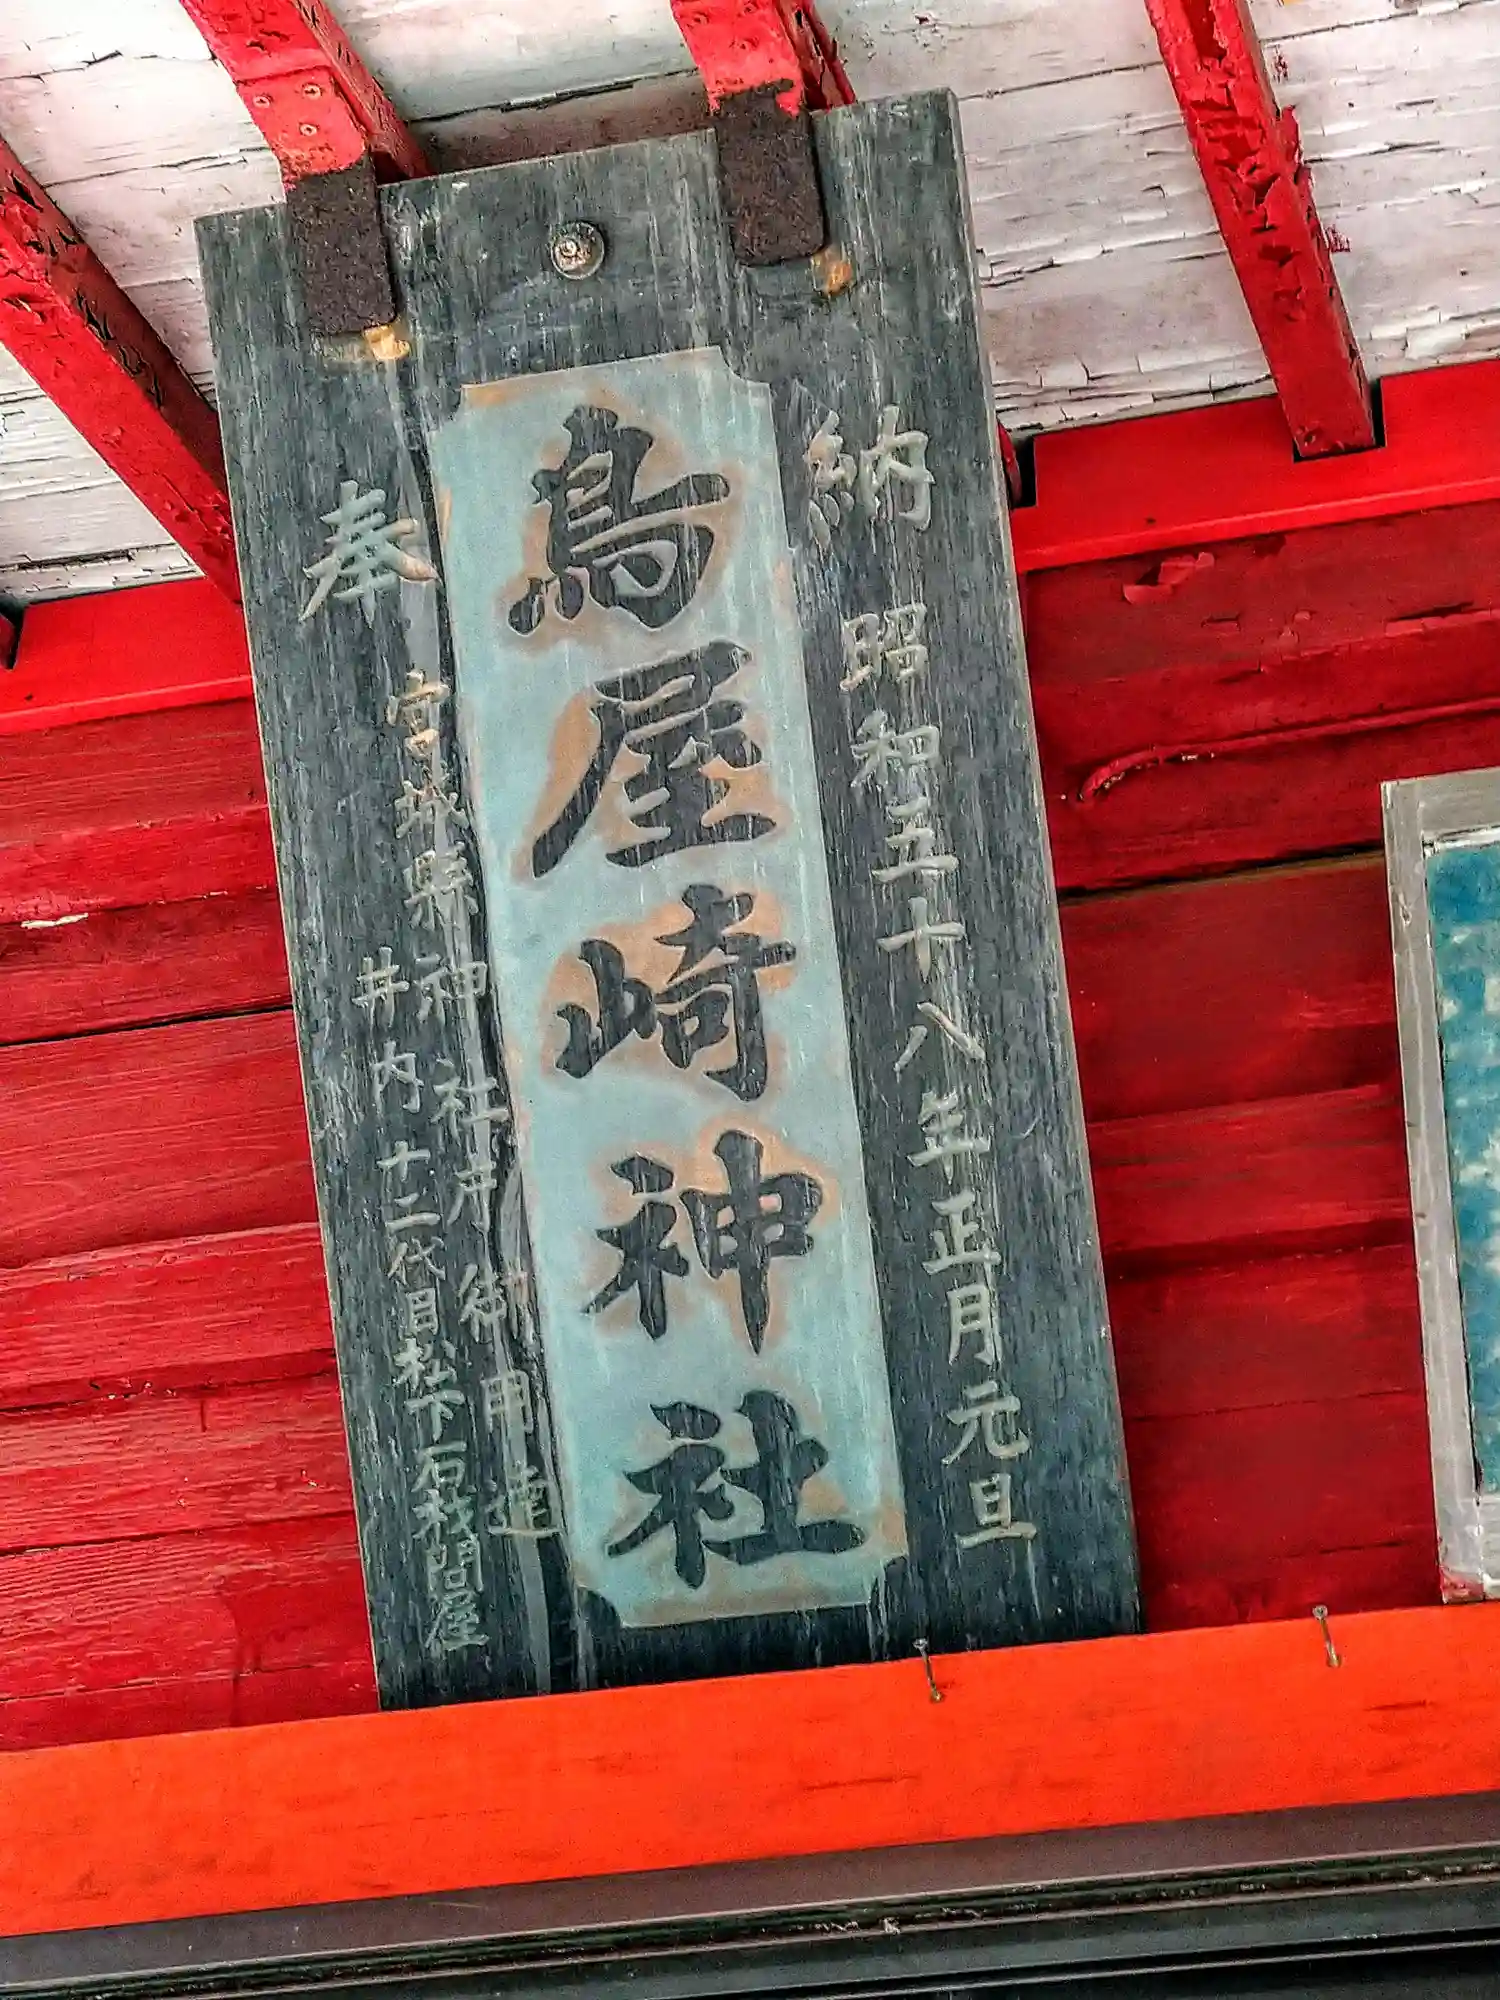 奉
納
鳥屋崎神社
昭和五十八年正月元旦
宮城縣神社庁御用達
井内十二代目松下石材問屋